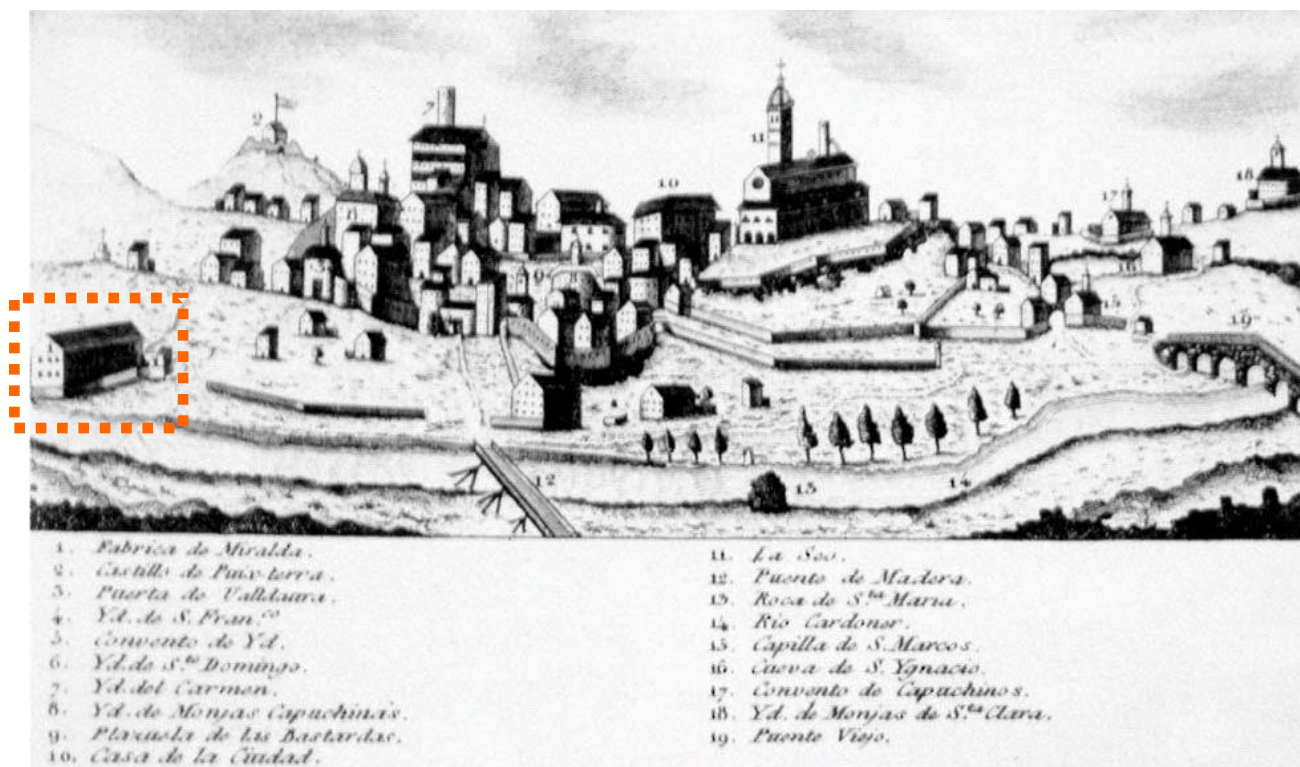 2
7
11
10
18
17
9
8
16
15
1
19
12
13
14
1. Fabrica de Miralda.
2. Castillo de Puix-terra.
3. Puerta de Valldaura.
4. Yd. de S. Fran.co
5. Convento de Yd.
6. Yd. de S.to Domingo.
7. Yd. del Carmen.
8. Yd. de Monjas Capuchinas.
9. Plazuela de las Bastardas.
10. Casa de la Ciudad.
11. La Seo.
12. Puente de Madera.
13. Roca de S.ta Maria.
14. Rio Cardoner.
15. Capilla de S. Marcos.
16. Cueva de S. Ygnacio.
17. Convento de Capuchinos.
18. Yd. de Monjas de S.ta Clara.
19. Puente Viejo.